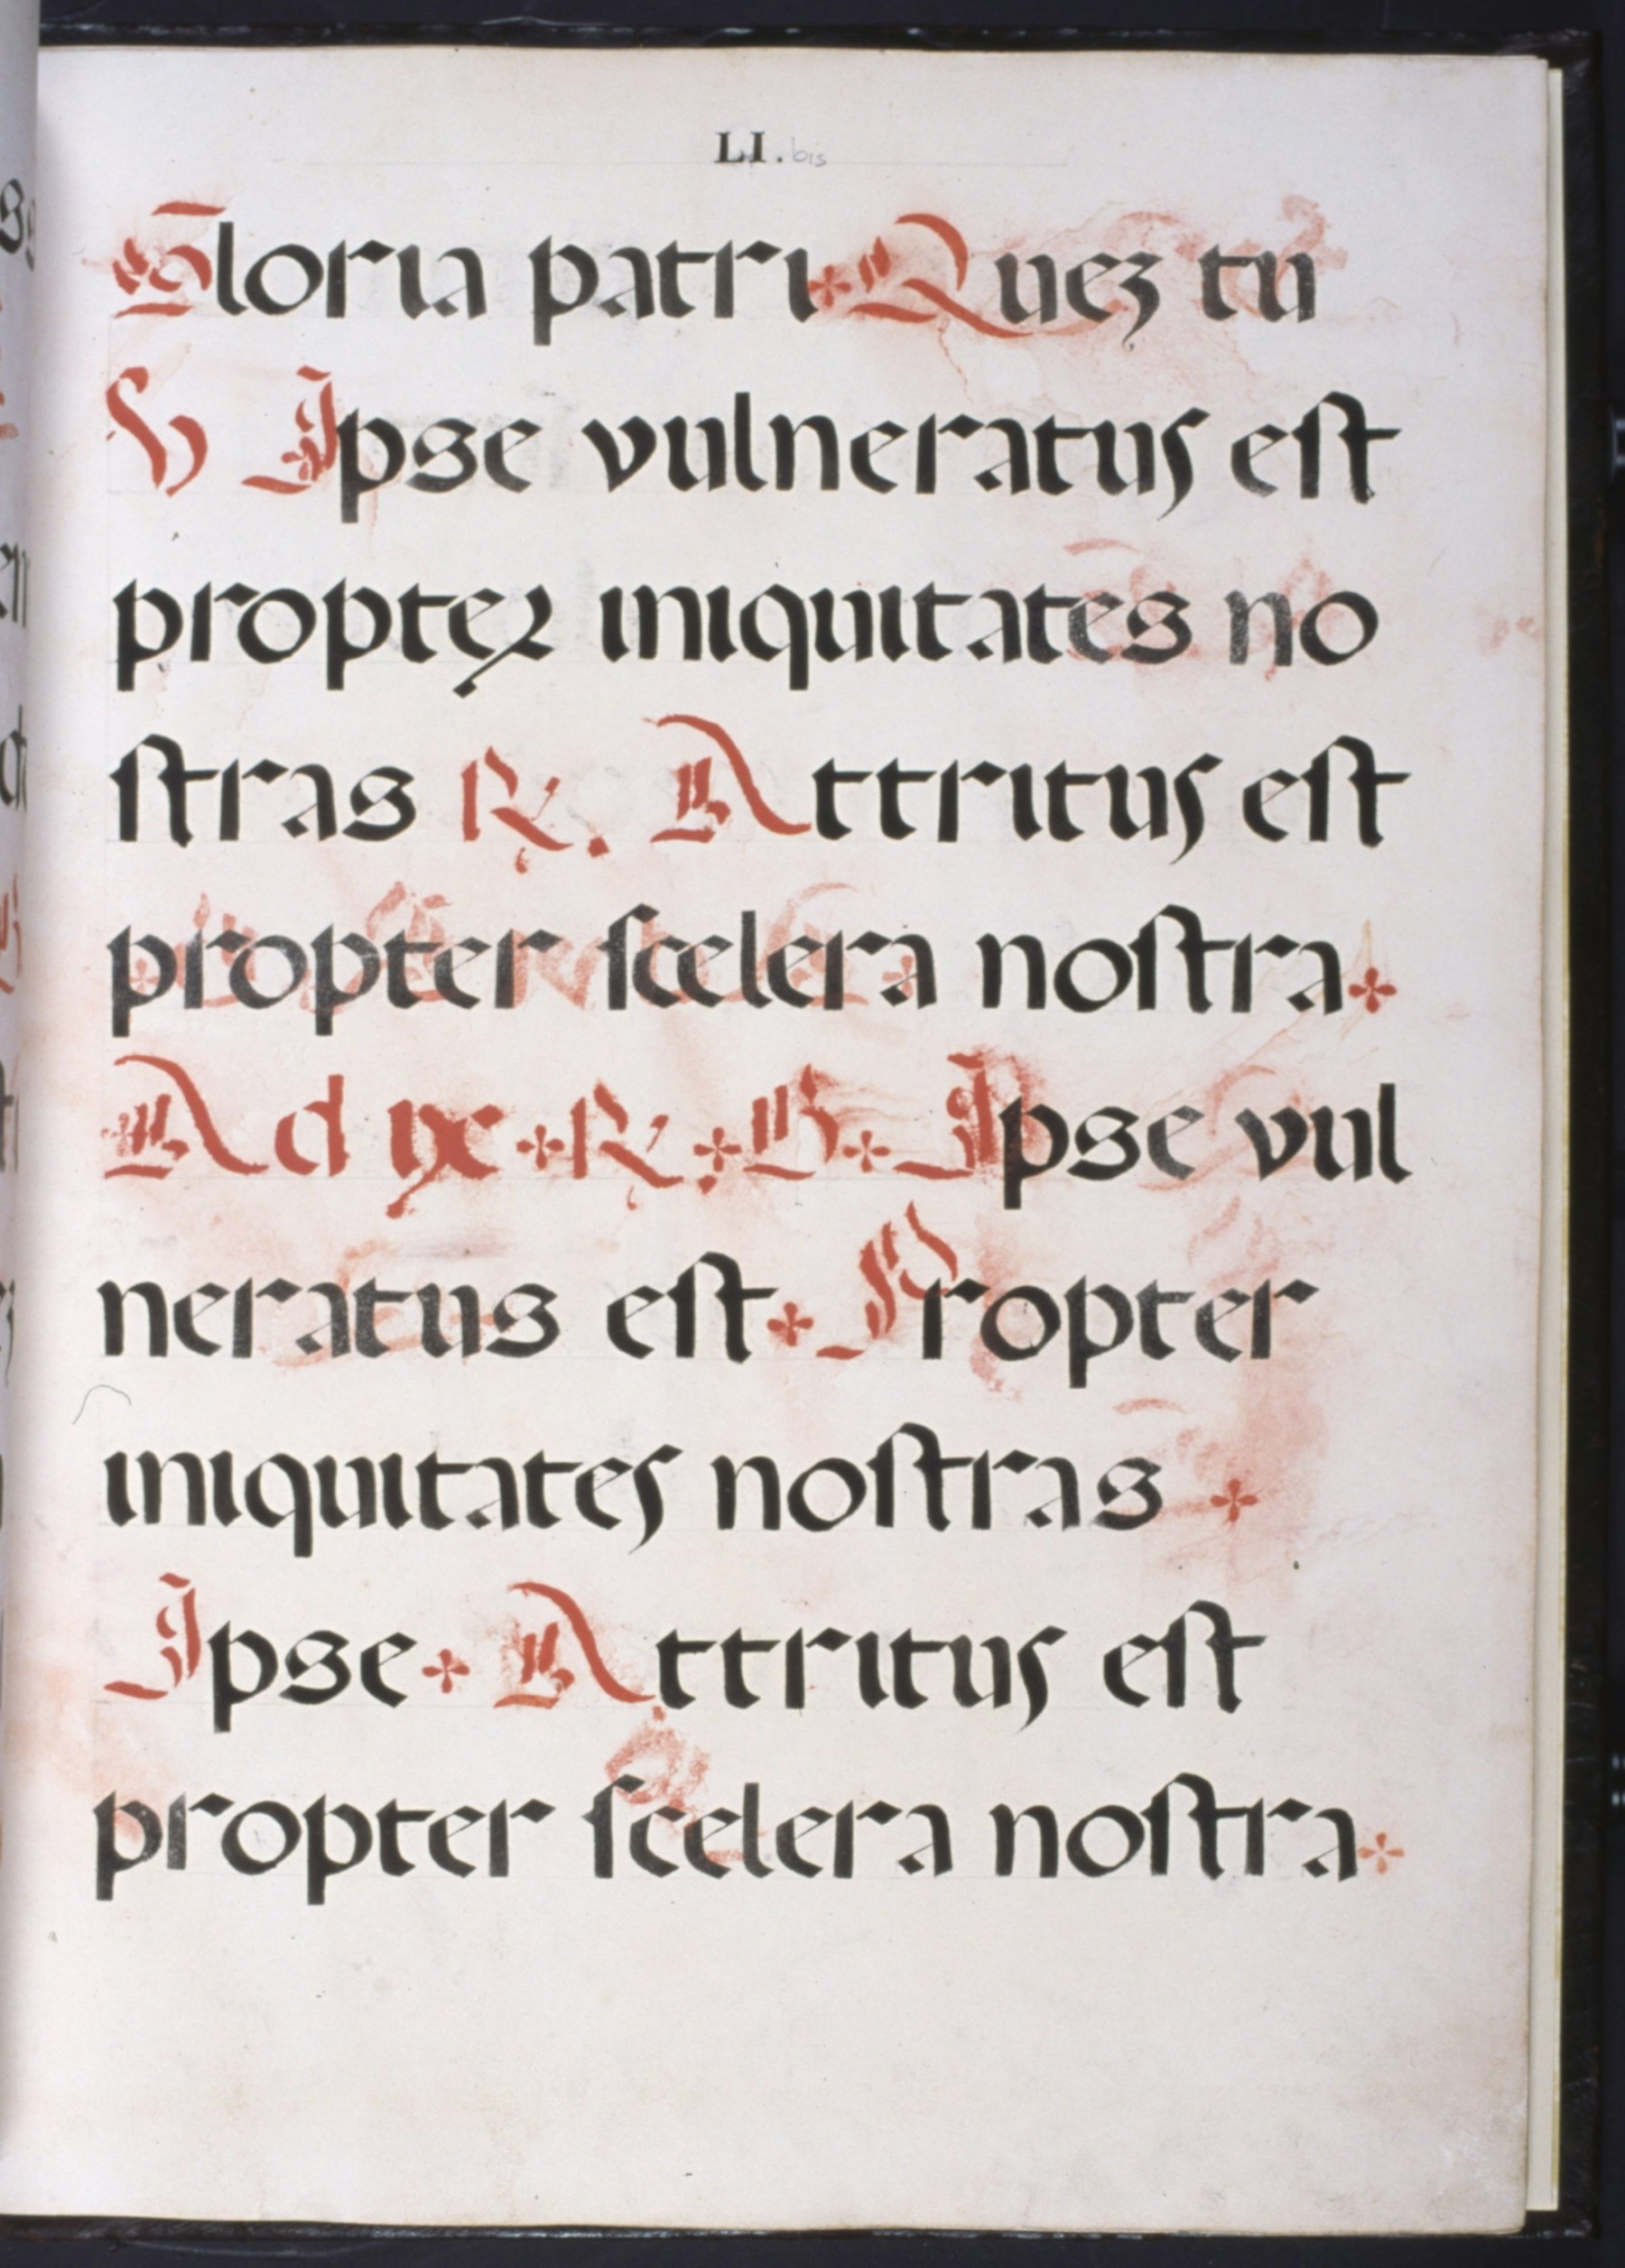 LI. bis
Gloria patri Quez tu
V Ipse vulneratus est
propter iniquitates no
stras R. Attritus est
propter scelera nostra
Ad ix R B Ipse vul
neratus est Propter
iniquitates nostras
Ipse Attritus est
propter scelera nostra